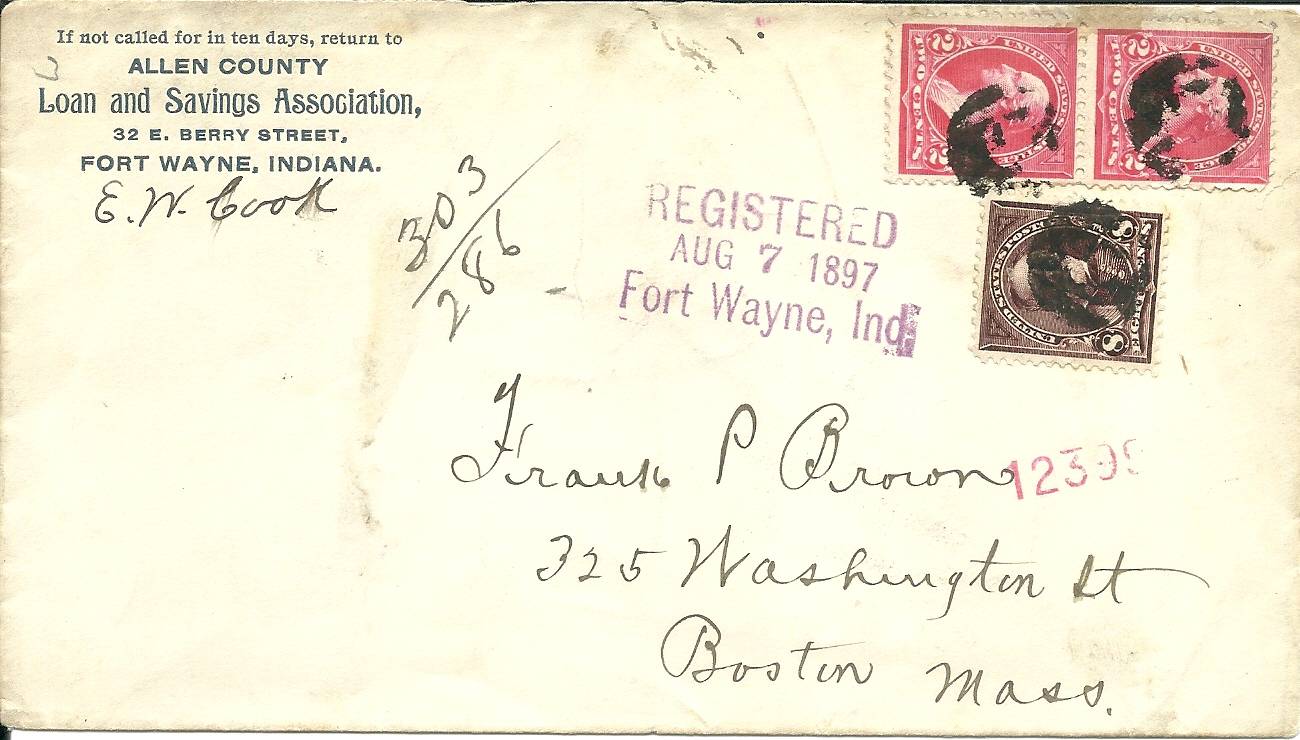 If not called for in ten days, return to
ALLEN COUNTY
Loan and Savings Association,
32 E. BERRY STREET,
FORT WAYNE, INDIANA.
E. W. Cook
303
286
REGISTERED
AUG 7 1897
Fort Wayne, Ind.
2 UNITED STATES 2
TWO CENTS
2 UNITED STATES 2
TWO CENTS
8 UNITED STATES 8
EIGHT CENTS
Frank P Brown
325 Washington St
Boston Mass.